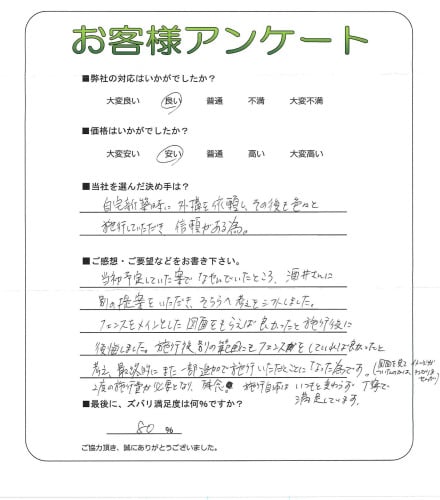 お客様アンケート
■弊社の対応はいかがでしたか?
大変良い 良い 普通 不満 大変不満
■価格はいかがでしたか?
大変安い 安い 普通 高い 大変高い
■当社を選んだ決め手は?
自宅新築時に外構を依頼し、その後も色々と
施行していただき、信頼がある為。
■ご感想・ご要望などをお書き下さい。
当初予定していた案でなやんでいたところ、酒井さんに
別の提案をいただき、そちらへ考えをシフトしました。
フェンスをメインとした図面をもらえば良かったと施行後に
後悔しました。施行後、別の範囲にもフェンスをしていれば良かったと
考え、最終的にまた一部追加で施行いただくことになった為です。
2度の施行費が必要となり、残念。施行自体はいつもと変わらず丁寧で
満足しています。
(図面を見てイメージが
■最後に、ズバリ満足度は何%ですか?
80 %
ご協力頂き、誠にありがとうございました。